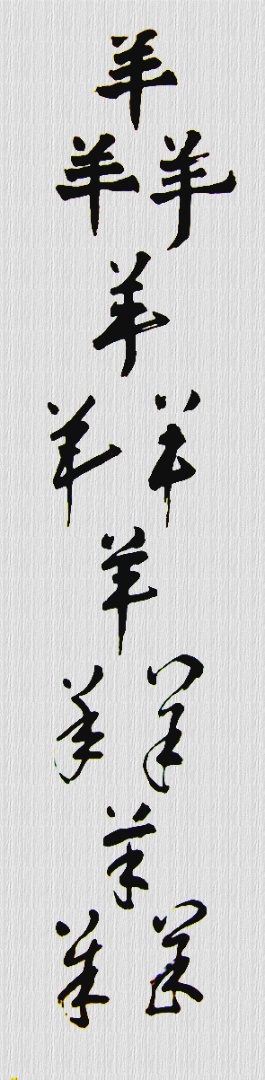 羊
羊羊
羊
羊羊
羊
羊羊
羊
羊羊